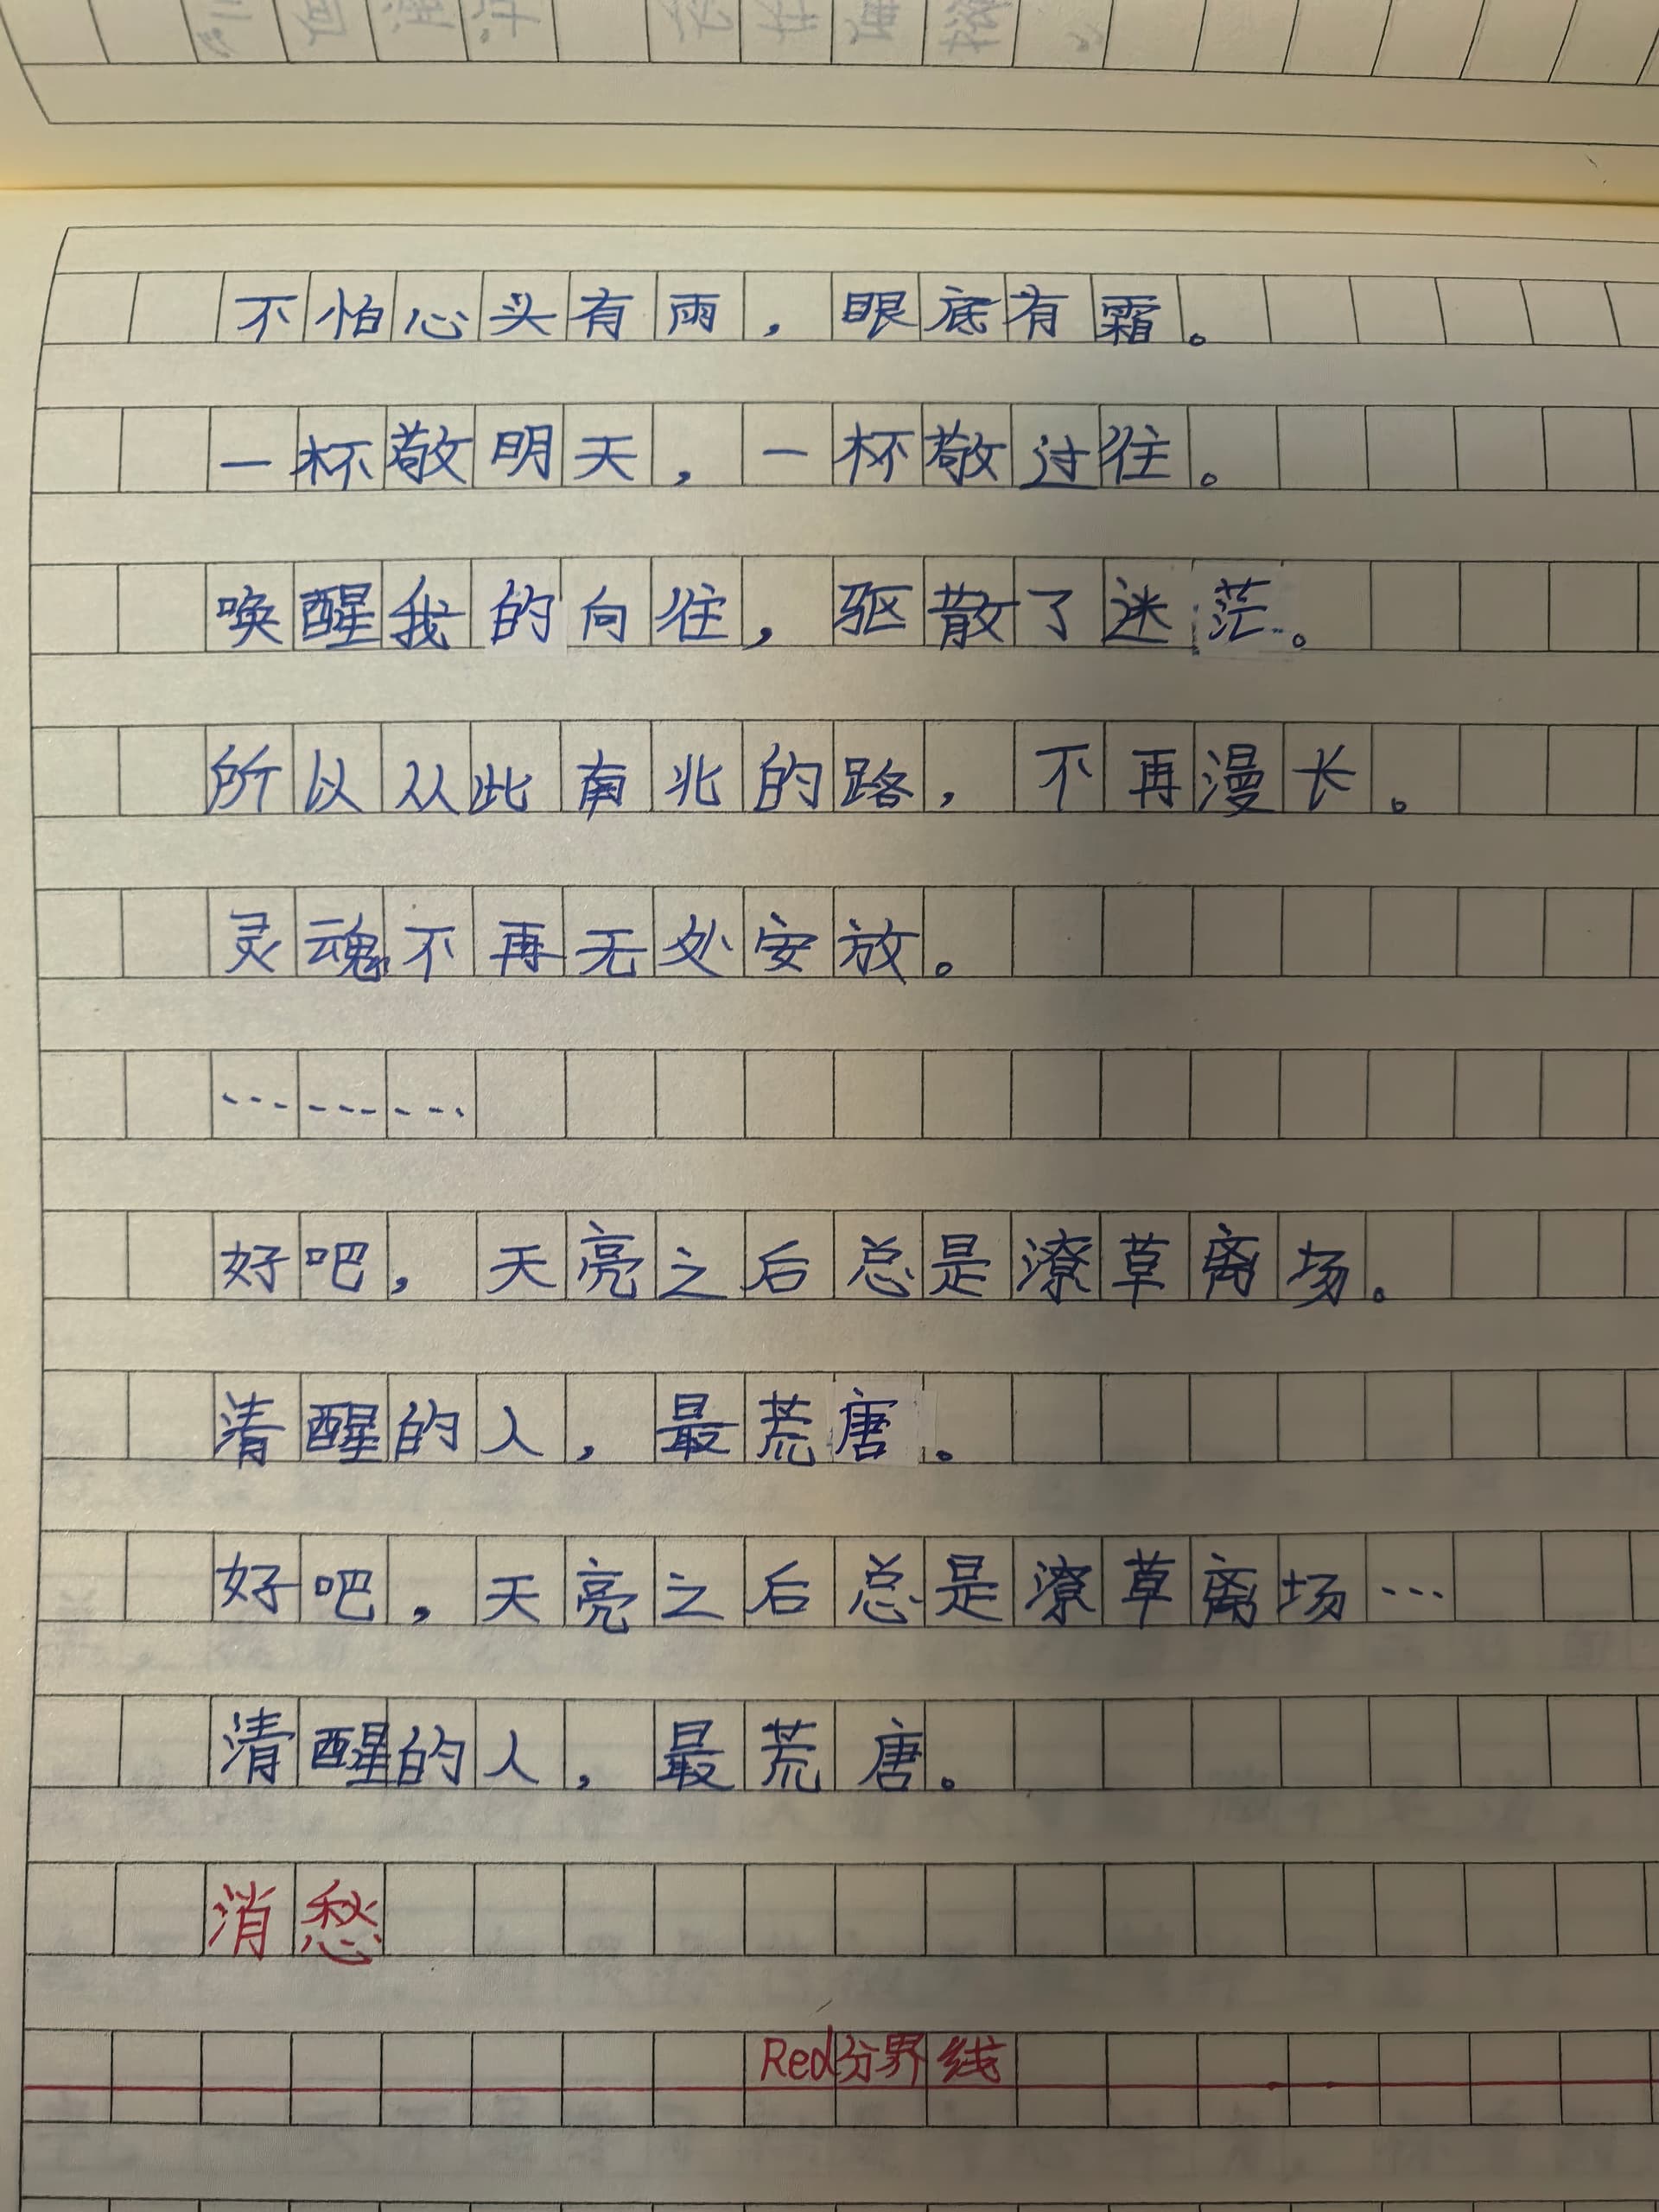 不怕心头有雨，眼底有霜。
一杯敬明天，一杯敬过往。
唤醒我的向往，驱散了迷茫。
所以从此南北的路，不再漫长。
灵魂不再无处安放。
………
好吧，天亮之后总是潦草离场。
清醒的人，最荒唐。
好吧，天亮之后总是潦草离场…
清醒的人，最荒唐。
消愁
Red分界线